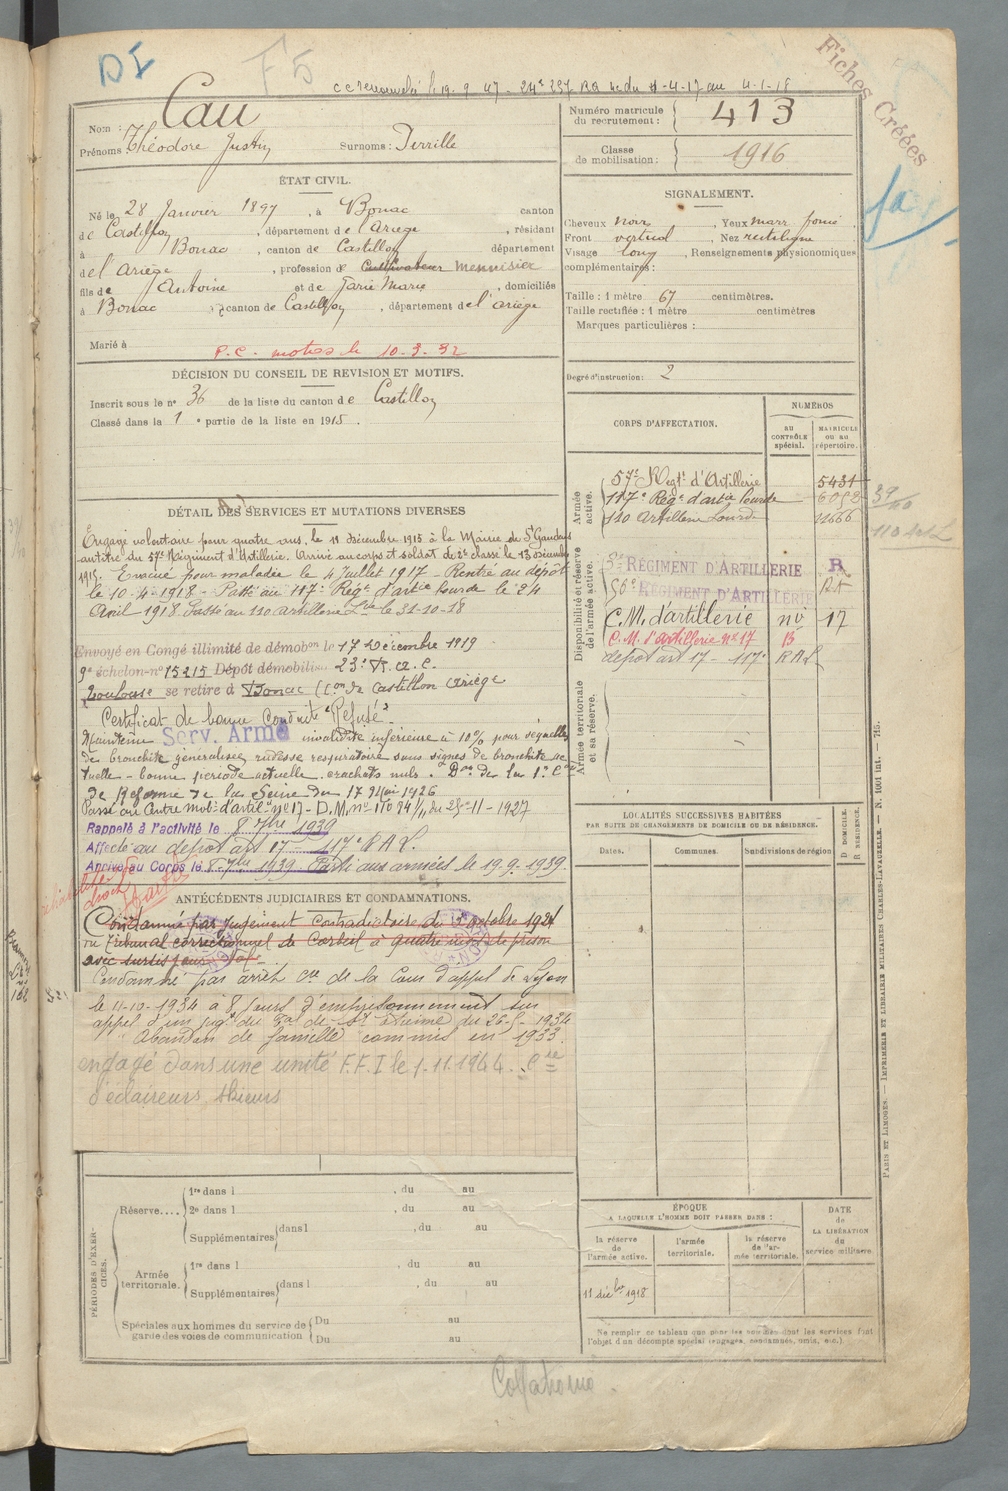 DI
F5
cc renouvelée le 19.9.47 - 24e 237 RA 4e du 4-4-17 au 4-1-18
Fiches Créées
Nom : Cau
Prénoms : Théodore Justin Surnoms :
Numéro matricule du recrutement : 413
Classe de mobilisation : 1916
ÉTAT CIVIL.
Né le 28 Janvier 1897, à Bonac canton
de Castillon, département de l'Ariège, résidant
à Bonac, canton de Castillon département
de l'Ariège, profession de Cultivateur Menuisier
fils de Antoine et de Marie, domiciliés
à Bonac canton de Castillon, département de l'ariège
Marié à
P.C. motos le 10.3.32
SIGNALEMENT.
Cheveux noir, Yeux marr. foncé
Front vertical, Nez rectiligne
Visage long, Renseignements physionomiques
complémentaires :
Taille : 1 mètre 67 centimètres.
Taille rectifiée : 1 mètre centimètres
Marques particulières :
Degré d'instruction : 2
DÉCISION DU CONSEIL DE REVISION ET MOTIFS.
Inscrit sous le n° 36 de la liste du canton de Castillon
Classé dans la 1e partie de la liste en 1915.
DÉTAIL DES SERVICES ET MUTATIONS DIVERSES
Engagé volontaire pour quatre ans, le 11 décembre 1915 à la Mairie de St Gaudens
au titre du 57e Régiment d'Artillerie. Arrivé au corps et soldat de 2e classe le 13 décembre
1915. Evacué pour maladie le 4 Juillet 1917 - Rentré au dépôt
le 10-4-1918 - Passé au 117e Régt d'artie lourde le 24
Avril 1918. Passé au 110 artillerie Lde le 31-10-18
Envoyé en Congé illimité de démobon le 17 Décembre 1919
9e échelon n° 15215 Dépôt démobilis. 23e R.A.C.
Toulouse se retire à Bonac Con de Castillon Ariège
Certificat de bonne Conduite "Refusé"
Maintenu Serv. Armé invalidité inférieure à 10% pour séquelles
de bronchite généralisée, rudesse respiratoire sans signes de bronchite ac
tuelle - bonne période actuelle. crachats nuls. Don de la 1e Con
de Réforme de la Seine du 17 Mai 1926
Passé au Centre Mobre d'artilie n° 17 - D.M. n° 11084 1/11 du 25-11-1927
Rappelé à l'activité le 8 7bre 1939
Affecté au dépôt art 17 - 117e R A L
Arrivé au Corps le 8 7bre 1939. Parti aux armées le 19.9.1939
CORPS D'AFFECTATION.
NUMÉROS
AU CONTRÔLE spécial.
MATRICULE OU AU répertoire.
Armée active.
57e Régt d'Artillerie 5431
117e Régt d'artie lourde 6092
110 Artillerie Lourde 12666
Disponibilité et réserve de l'armée active.
RÉGIMENT D'ARTILLERIE R
56e RÉGIMENT D'ARTILLERIE
C.M. d'artillerie no 17
C.M. d'artillerie n° 17 B
depot art 17 - 117e R A L
Armée territoriale et sa réserve.
LOCALITÉS SUCCESSIVES HABITÉES
PAR SUITE DE CHANGEMENTS DE DOMICILE OU DE RÉSIDENCE.
Dates. Communes. Subdivisions de région
D DOMICILE.
R RÉSIDENCE.
ANTÉCÉDENTS JUDICIAIRES ET CONDAMNATIONS.
Condamné par jugement contradictoire du 5 octobre 1921
du Tribunal correctionnel de Corbeil à quatre mois de prison
avec sursis pour vol.
Condamné par arrêt cre de la Cour d'appel de Lyon
le 11-10-1934 à 8 jours d'emprisonnement sur
appel d'un jugt du Tal de St Etienne du 26-5-1934
Abandon de famille commis en 1933.
engagé dans une unité F.F.I le 1.11.1944.
d'éclaireurs skieurs
PÉRIODES D'EXERCICES.
Réserve.... 1re dans l , du au
2e dans l , du au
Supplémentaires dans l , du au
Armée territoriale. 1re dans l , du au
Supplémentaires dans l , du au
Spéciales aux hommes du service de garde des voies de communication Du au
Du au
ÉPOQUE
A LAQUELLE L'HOMME DOIT PASSER DANS :
la réserve de l'armée active.
l'armée territoriale.
la réserve de l'armée territoriale.
DATE de LA LIBÉRATION du service militaire
11 décbre 1918
Ne remplir ce tableau que pour les hommes dont les services font
l'objet d'un décompte spécial (engagés, condamnés, omis, etc.)
PARIS ET LIMOGES. — IMPRIMERIE ET LIBRAIRIE MILITAIRES CHARLES-LAVAUZELLE. — N. 1001 int. — 715.
Collationné.